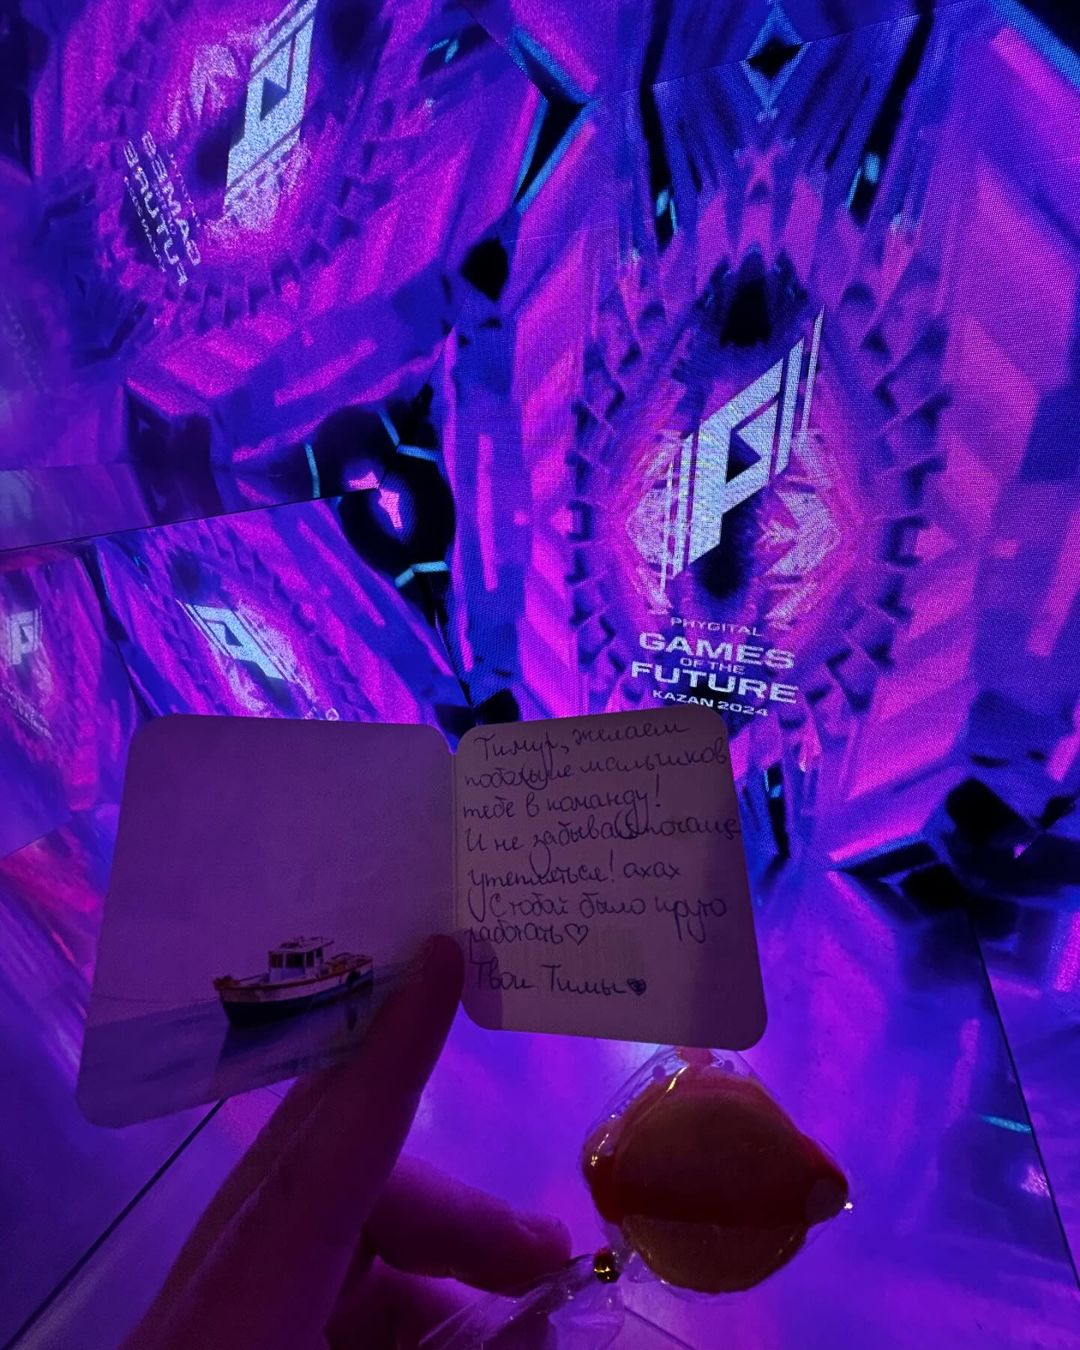 GAMES
FUTURE
PHYGITAL
GAMES
OF THE
FUTURE
KAZAN 2024
Тимур, желаем
побольше мальчиков
тебе в команду!
И не забывай почаще
утепляться! ахах
С тобой было круто
работать♡
Твои Тимы♥